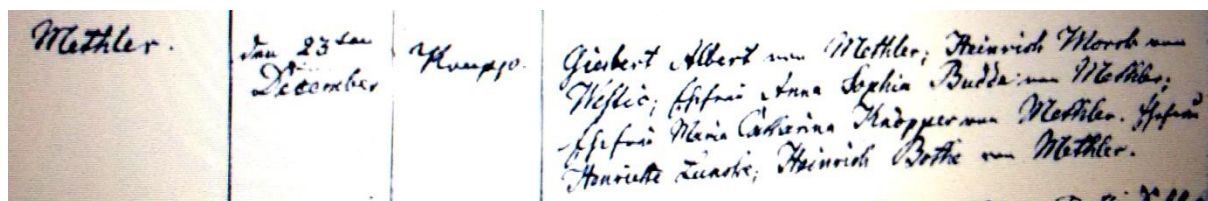 Methler.
den 23ten
December
Giesbert Albert von Methler; Heinrich Morck von
Westic; Ehefrau Anna Sophia Budde von Methler;
Ehefrau Maria Catharina Knöpper von Methler. Ehefrau
Henriette Heinrich Bothe von Methler.